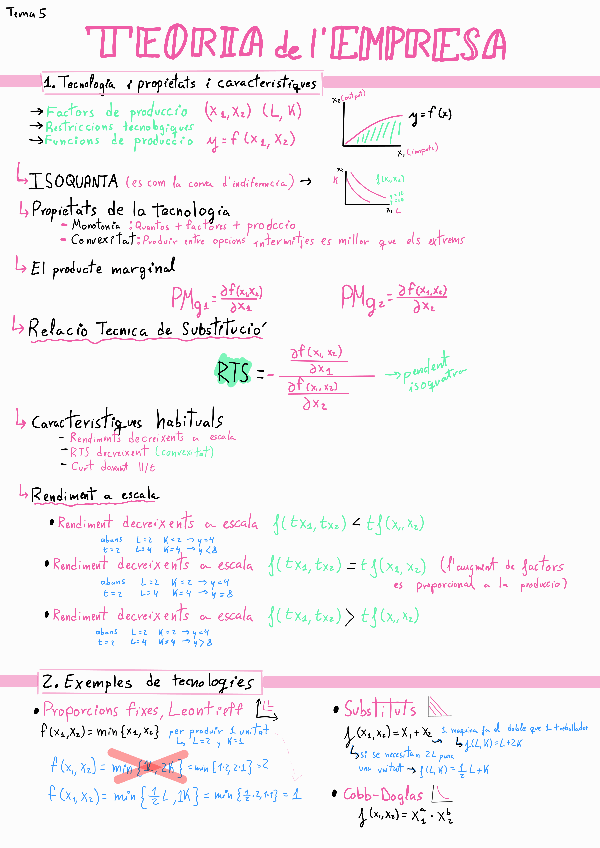 Tema 5
TEORIA de l'EMPRESA
1. Tecnologia i propietats i caracteristiques
→ Factors de produccio (x₁, x₂) (L, K)
→ Restriccions tecnologiques
→ Funcions de produccio y = f(x₁, x₂)
x₂ (output)
y = f(x)
x₁ (imputs)
ISOQUANTA (es com la corva d'indiferencia) →
x₂
K
f(x₁, x₂)
x₁ L
Propietats de la tecnologia
- Monotonia: Quantos + factores + produccio
- Convexitat: Produir entre opcions intermitjes es millor que els extrems
El producte marginal
PMg₁ = ∂f(x₁,x₂)/∂x₁
PMg₂ = ∂f(x₁,x₂)/∂x₂
Relacio Tecnica de Substitució
RTS = - (∂f(x₁,x₂)/∂x₁)/(∂f(x₁,x₂)/∂x₂) → pendent isoquatra
Caracteristiques habituals
- Rendiments decreixents a escala
- RTS decreixent (convexitat)
- Curt davant ll/t
Rendiment a escala
• Rendiment decreixents a escala f(tx₁, tx₂) < tf(x₁, x₂)
abans L=2 K=2 → y=4
t=2 L=4 K=4 → y<8
• Rendiment decreixents a escala f(tx₁, tx₂) = tf(x₁, x₂) (l'augment de factors
es proporcional a la produccio)
abans L=2 K=2 → y=4
t=2 L=4 K=4 → y=8
• Rendiment decreixents a escala f(tx₁, tx₂) > tf(x₁, x₂)
abans L=2 K=2 → y=4
t=2 L=4 K=4 → y>8
2. Exemples de tecnologies
• Proporcions fixes, Leontieff
f(x₁, x₂) = min{x₁, x₂} per produir 1 unitat
L=2 y K=1
f(x₁, x₂) = min{1L, 2K} = min{1·2, 2·1} = 2
f(x₁, x₂) = min{½L, 1K} = min{½·2, 1·1} = 1
• Substituts
f(x₁, x₂) = x₁ + x₂ 1 maquina fa el doble que 1 treballador
f(L, K) = L+2K
si se necesitan 2L para
una unitat → f(L, K) = ½L+K
• Cobb-Doglas
f(x₁, x₂) = x₁ᵃ · x₂ᵇ